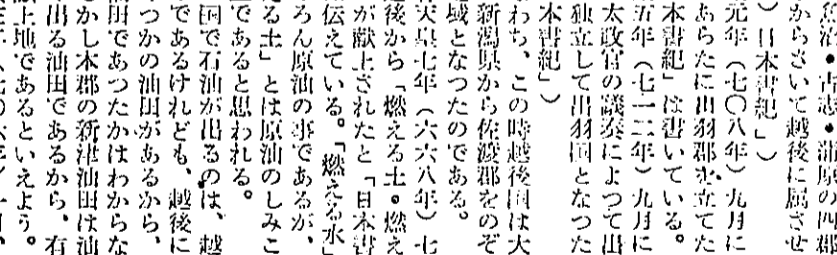 魚沼・古志・蒲原の四郡
からさいて越後に属させ
）日本書紀」）
元年（七〇八年）九月に
あらたに出羽郡を立てた
本書紀」は書いている。
五年（七一二年）九月に
太政官の議奏によつて出
独立して出羽国となつた
本書紀」）
わち、この時越後国は大
新潟県から佐渡郡をのぞ
域となつたのである。
天皇七年（六六八年）七
越後から「燃える土。燃え
が献上されたと「日本書
伝えている。「燃える水」
ろん原油の事であるが、
る土」とは原油のしみこ
であると思われる。
国で石油が出るのは、越
であるけれども、越後に
つかの油田があるから、
田であつたかはわからな
かし本郡の新津油田は油
出る油田であるから、有
上地であるといえよう。